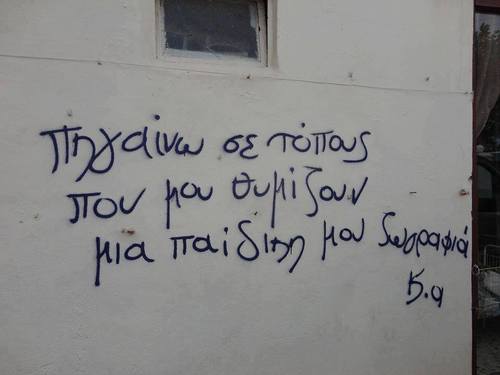 πηγαίνω σε τόπους
που μου θυμίζουν
μια παιδικη μου ζωγραφιά
κ.α